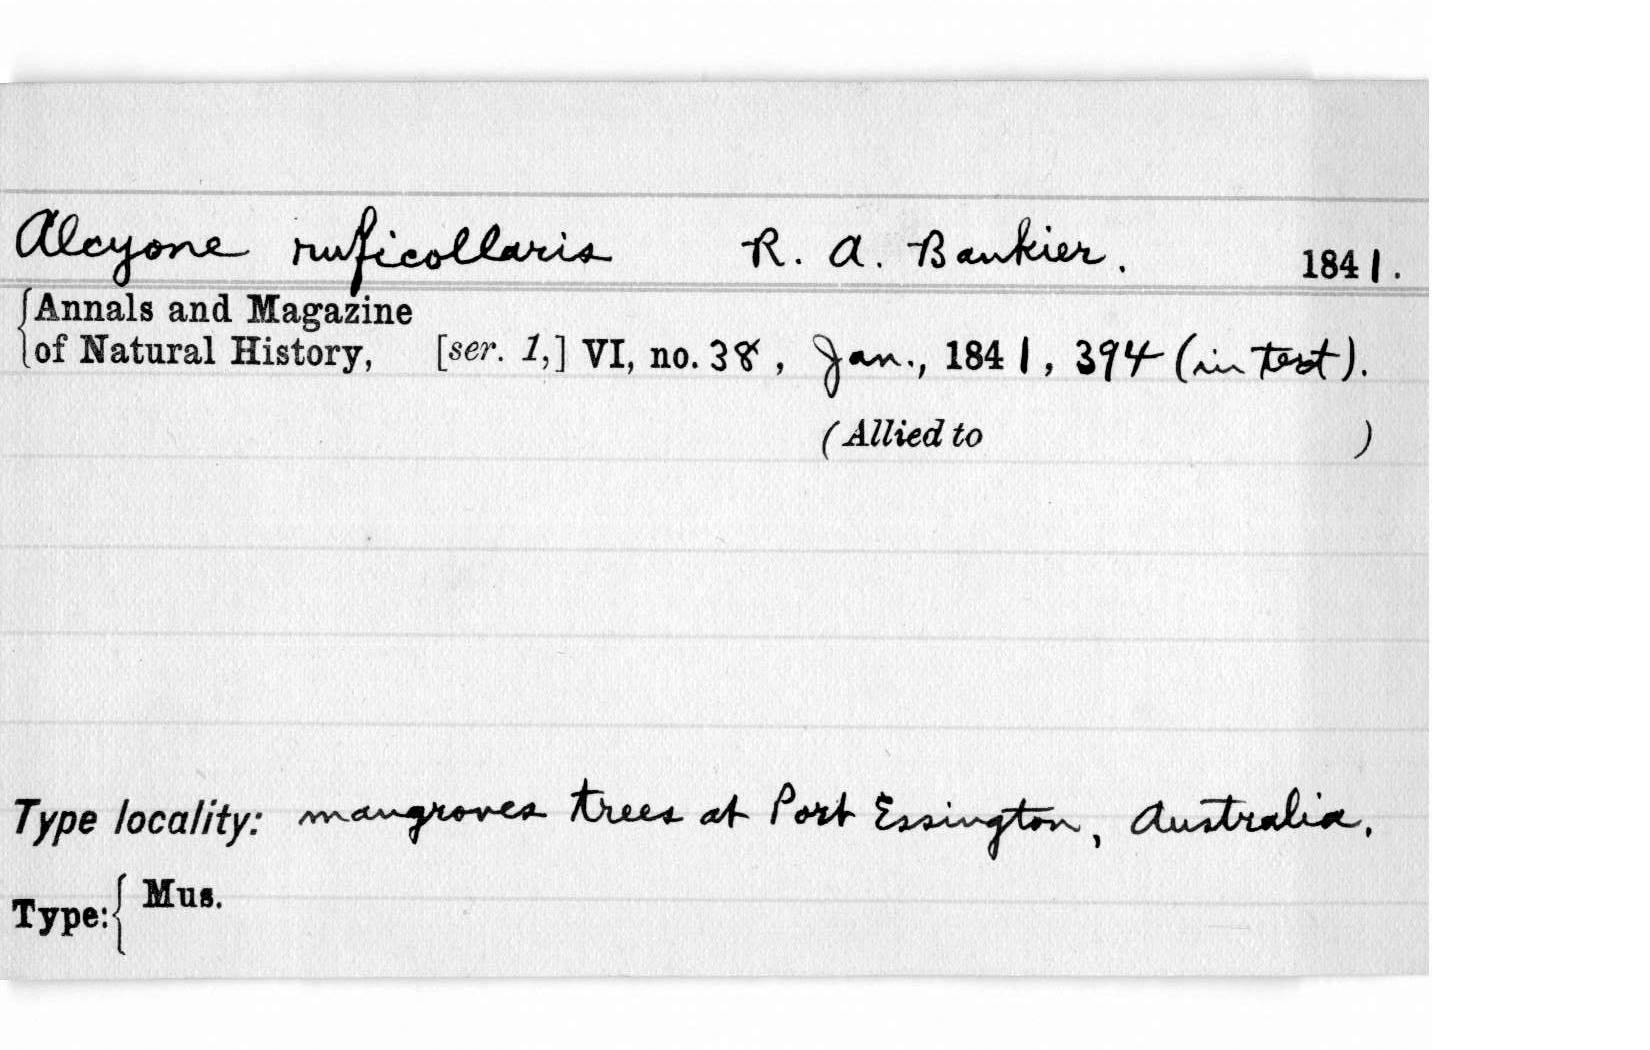 Alcyone ruficollaris R. A. Bankier. 1841.
Annals and Magazine
of Natural History, [ser. 1,] VI, no. 38, Jan., 1841, 394 (in text).
(Allied to )
Type locality: mangroves trees at Port Essington, Australia.
Type: Mus.